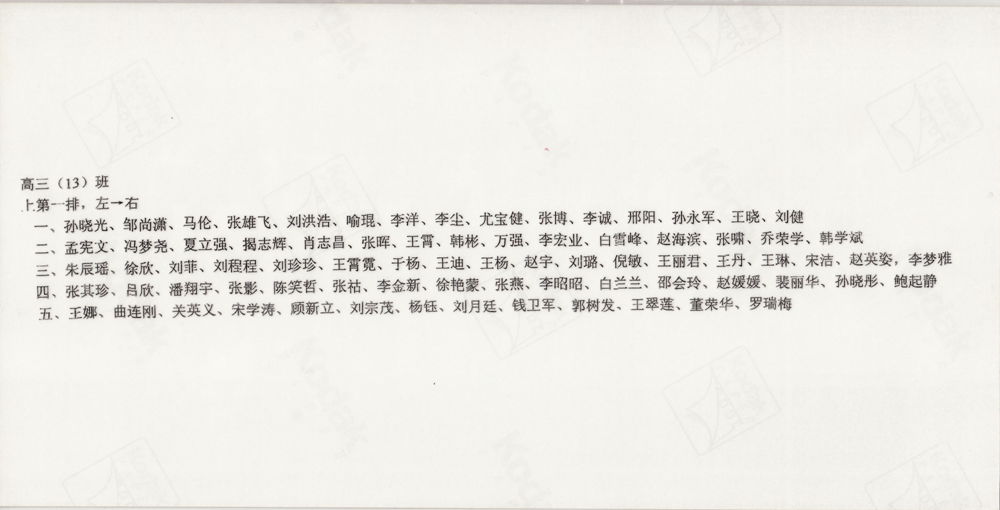 高三（13）班
上第一排，左→右
一、孙晓光、邹尚潇、马伦、张雄飞、刘洪浩、喻琨、李洋、李尘、尤宝健、张博、李诚、邢阳、孙永军、王晓、刘健
二、孟宪文、冯梦尧、夏立强、揭志辉、肖志昌、张晖、王霄、韩彬、万强、李宏业、白雪峰、赵海滨、张啸、乔荣学、韩学斌
三、朱辰瑶、徐欣、刘菲、刘程程、刘珍珍、王霄霓、于杨、王迪、王杨、赵宇、刘璐、倪敏、王丽君、王丹、王琳、宋洁、赵英姿，李梦雅
四、张其珍、吕欣、潘翔宇、张影、陈笑哲、张祜、李金新、徐艳蒙、张燕、李昭昭、白兰兰、邵会玲、赵媛媛、裴丽华、孙晓彤、鲍起静
五、王娜、曲连刚、关英义、宋学涛、顾新立、刘宗茂、杨钰、刘月廷、钱卫军、郭树发、王翠莲、董荣华、罗瑞梅
Kodak
Kodak
Kodak
Kodak
Kodak